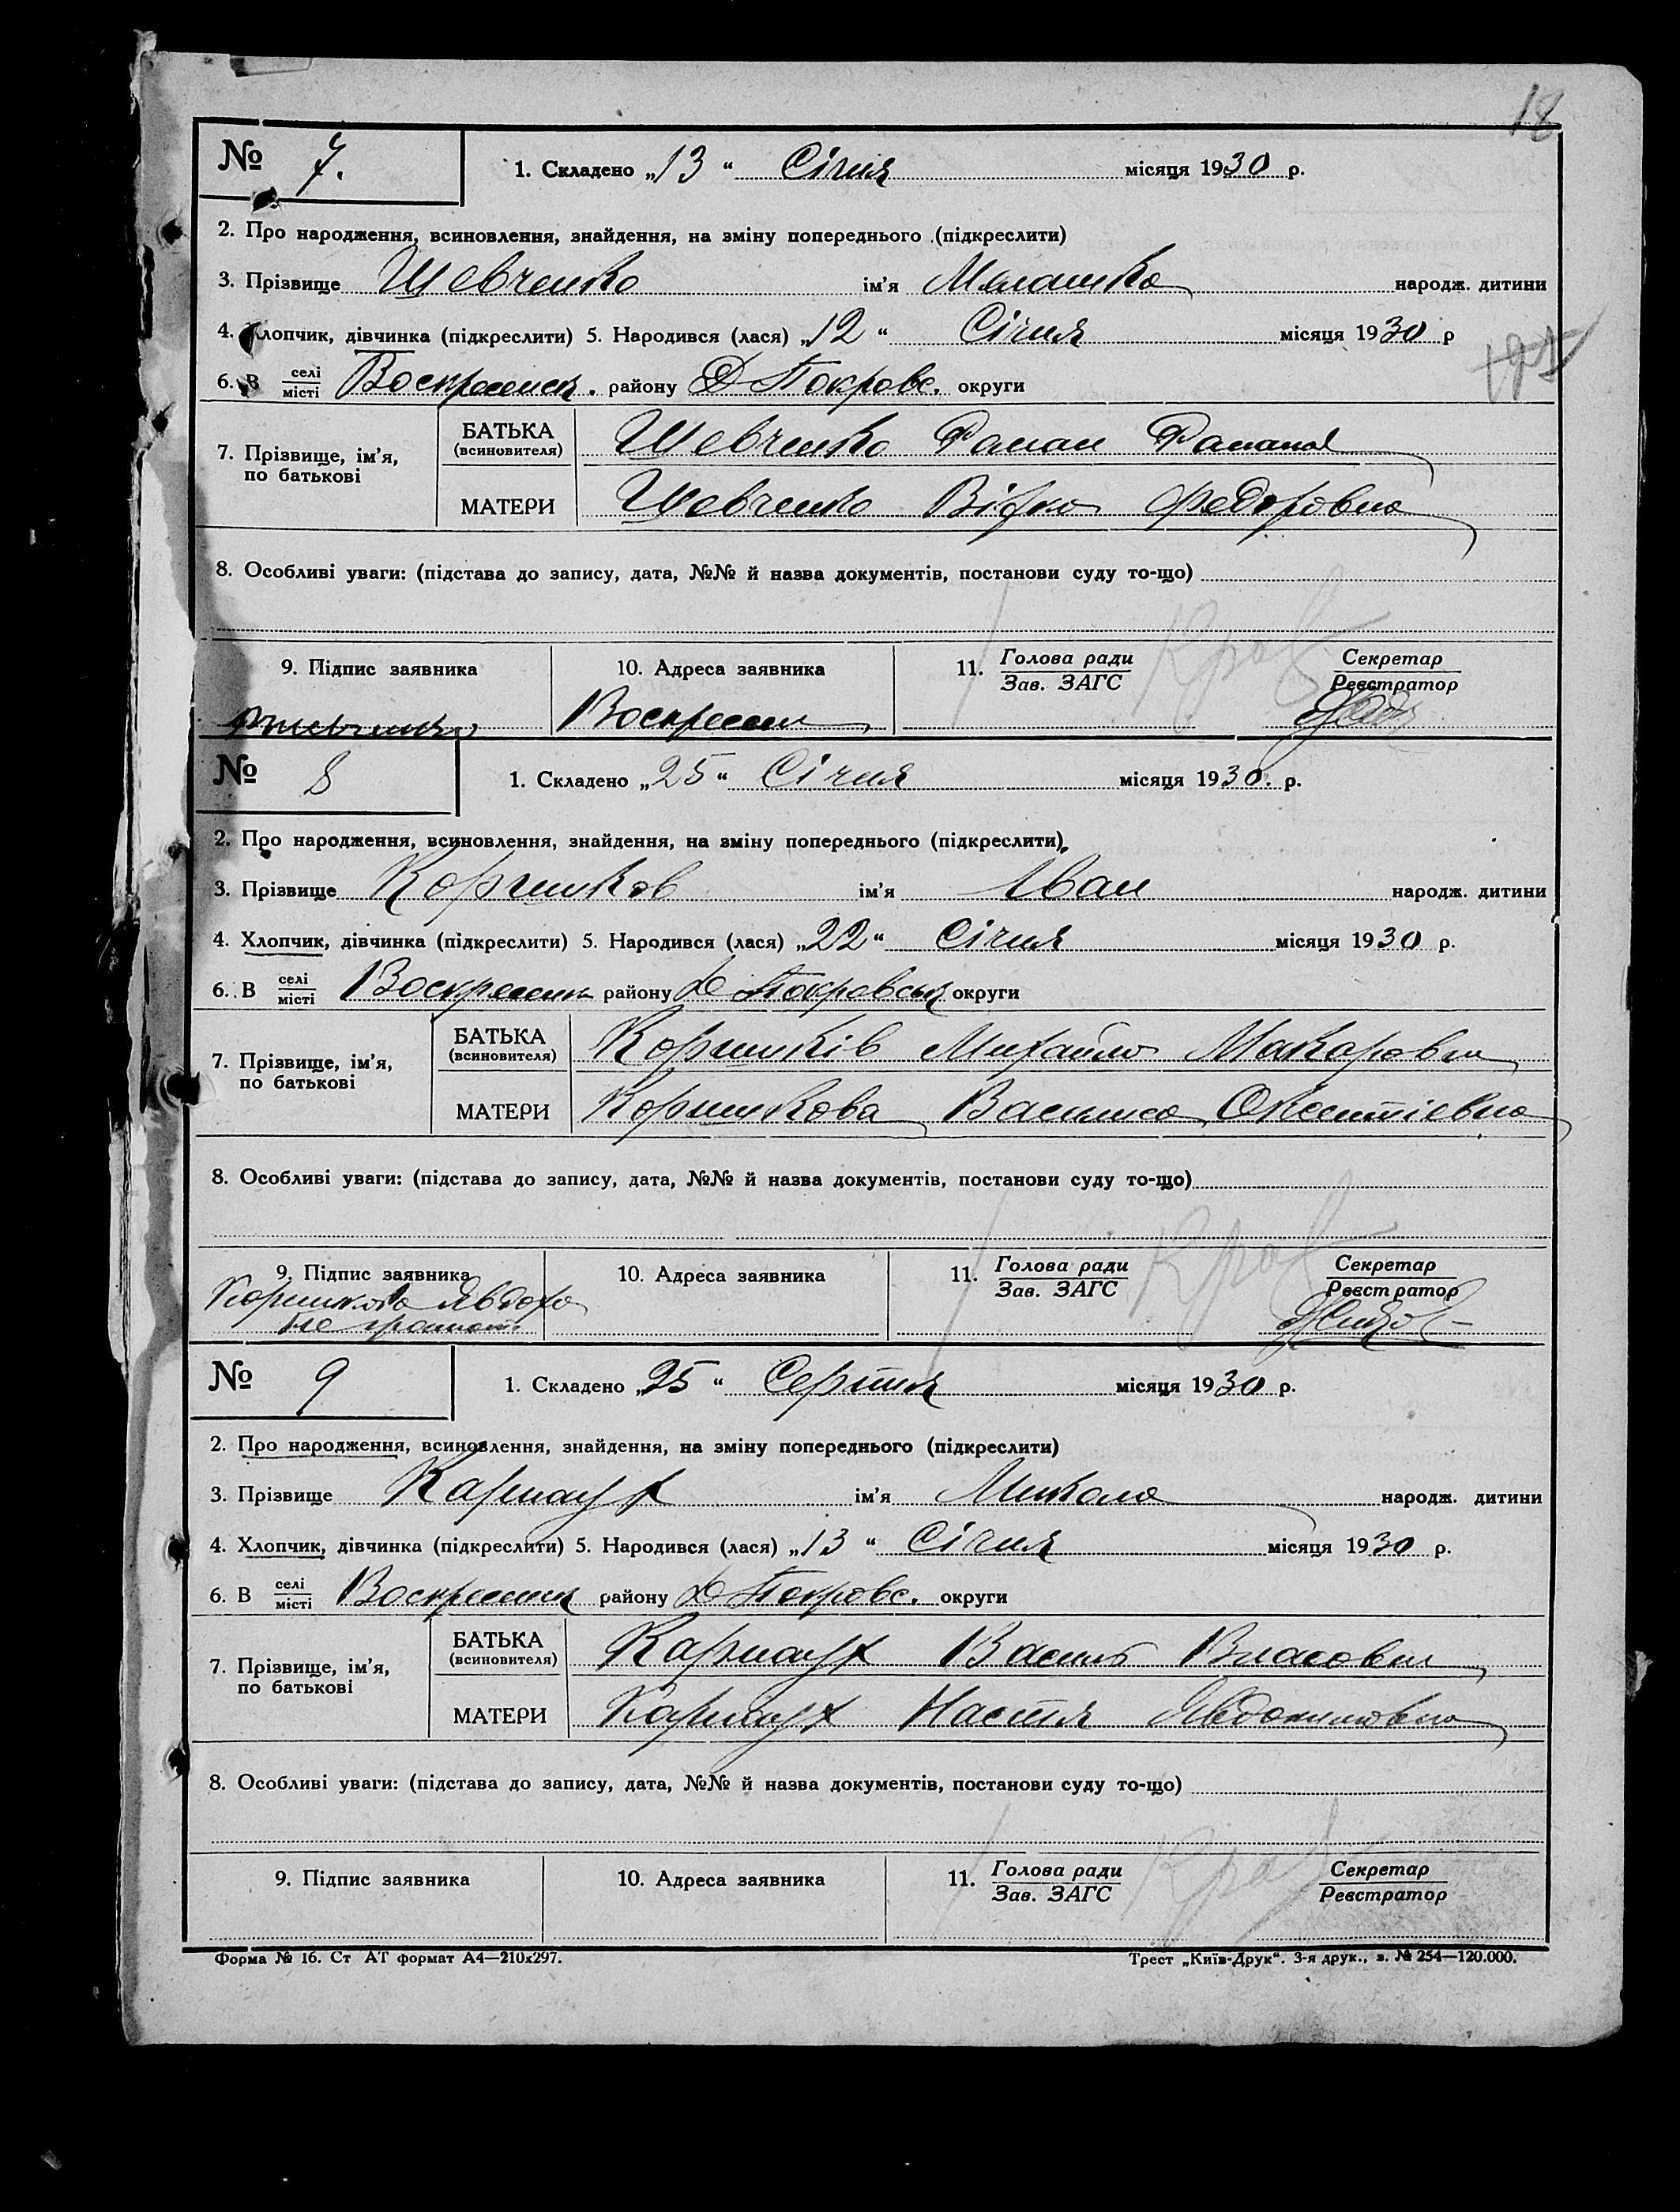 18
№ 7. 1. Складено „13“ Січня місяця 1930 р.
2. Про народження, всиновлення, знайдення, на зміну попереднього (підкреслити)
3. Прізвище Шевченко ім'я Малашка народж. дитини
4. Хлопчик, дівчинка (підкреслити) 5. Народився (лася) „12“ Січня місяця 1930 р
6. В селі місті Воскресенск. району Д Покровс. округи
7. Прізвище, ім'я, по батькові
БАТЬКА (всиновителя) Шевченко Роман
МАТЕРИ Шевченко Федоровна
8. Особливі уваги: (підстава до запису, дата, №№ й назва документів, постанови суду то-що)
9. Підпис заявника 10. Адреса заявника 11. Голова ради Зав. ЗАГС Секретар Реєстратор
Воскресен
№ 8 1. Складено „25“ Січня місяця 1930. р.
2. Про народження, всиновлення, знайдення, на зміну попереднього (підкреслити)
3. Прізвище Коршиков ім'я Іван народж. дитини
4. Хлопчик, дівчинка (підкреслити) 5. Народився (лася) „22“ Січня місяця 1930 р.
6. В селі місті Воскресенк району Д Покровськ округи
7. Прізвище, ім'я, по батькові
БАТЬКА (всиновителя) Коршиків Михайло Макарович
МАТЕРИ Коршикова Василиса
8. Особливі уваги: (підстава до запису, дата, №№ й назва документів, постанови суду то-що)
9. Підпис заявника 10. Адреса заявника 11. Голова ради Зав. ЗАГС Секретар Реєстратор
Коршикова Явдоха
№ 9 1. Складено „25“ Серпня місяця 1930 р.
2. Про народження, всиновлення, знайдення, на зміну попереднього (підкреслити)
3. Прізвище Карнаух ім'я Микола народж. дитини
4. Хлопчик, дівчинка (підкреслити) 5. Народився (лася) „13“ Січня місяця 1930 р.
6. В селі місті Воскресенск району Д Покровс. округи
7. Прізвище, ім'я, по батькові
БАТЬКА (всиновителя) Карнаух Василь Власович
МАТЕРИ Карнаух Настя Явдокимовна
8. Особливі уваги: (підстава до запису, дата, №№ й назва документів, постанови суду то-що)
9. Підпис заявника 10. Адреса заявника 11. Голова ради Зав. ЗАГС Секретар Реєстратор
Форма № 16. Ст АТ формат А4—210х297. Трест „Київ-Друк“. 3-я друк., з. № 254—120.000.